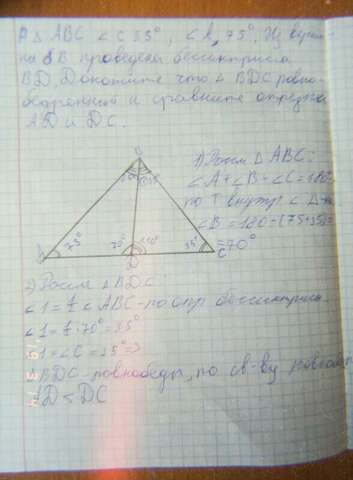 В △ ABC ∠C 35°, ∠A 75°, Из верши-
ны B проведена биссектриса
BD, Докажите что △ BDC равно-
бедренный и сравните отрезки
AD и DC.
1) Рассм △ ABC:
∠A + ∠B + ∠C = 180°
по Т внутр ∠ △-ка
∠B = 180 - (75+35) =
=70°
75°
70°
110°
35°
D
C
2) Рассм △ BDC:
∠1 = ½ ∠ABC - по опр биссектрисы
∠1 = ½ · 70° = 35°
∠1 = ∠C = 35° ⇒
△BDC - равнобедр, по св-ву
AD < DC